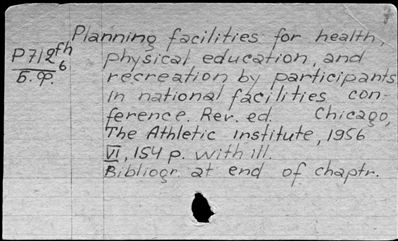 Planning facilities for health,
P712fh physical education, and
6
Б.Ф. recreation by participants
in national facilities con-
ference. Rev. ed. Chicago,
The Athletic institute, 1956
VI, 154 p. with ill.
Bibliogr. at end of chaptr.